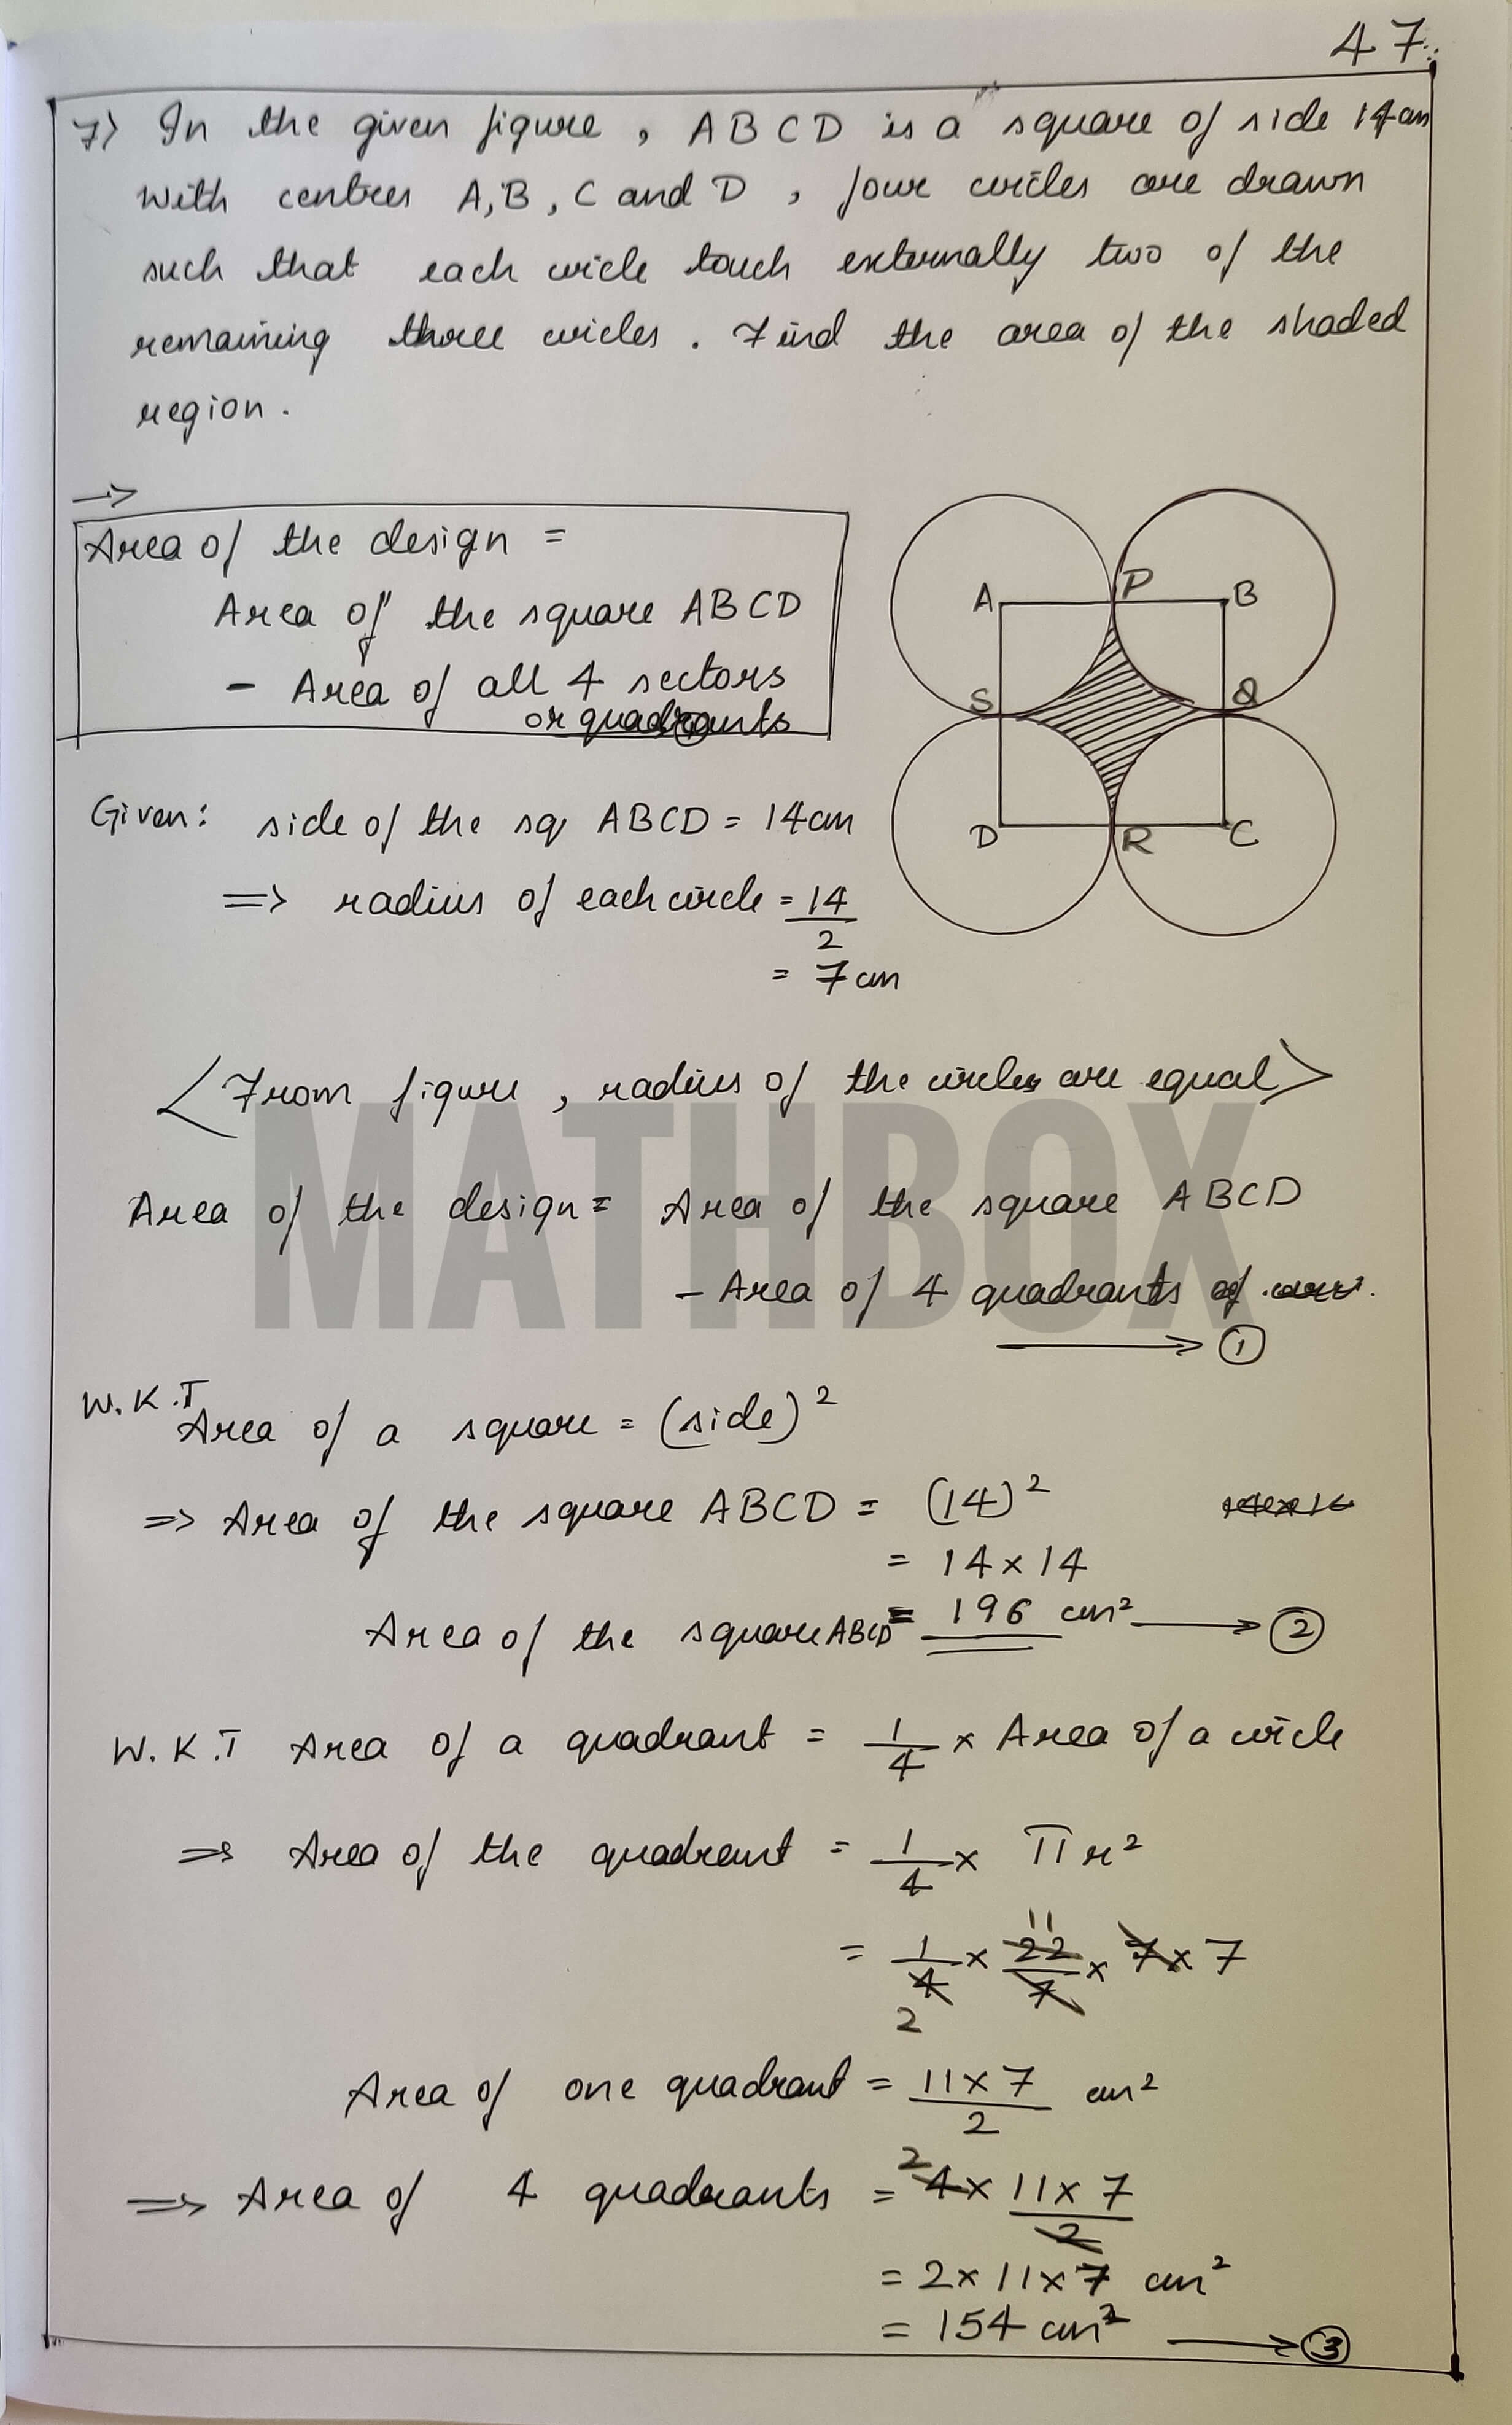 47.
7) In the given figure, ABCD is a square of side 14cm
with centres A, B, C and D, four circles are drawn
such that each circle touch externally two of the
remaining three circles. Find the area of the shaded
region.
→
Area of the design =
Area of the square ABCD
- Area of all 4 sectors
or quadrants
A P B
S Q
D R C
Given: side of the sq ABCD = 14cm
=> radius of each circle = 14/2
= 7cm
<From figure, radius of the circles are equal>
MATHBOX
Area of the design = Area of the square ABCD
- Area of 4 quadrants
→ ①
W.K.T
Area of a square = (side)²
=> Area of the square ABCD = (14)²
= 14 × 14
Area of the square ABCD = 196 cm² → ②
W.K.T Area of a quadrant = 1/4 × Area of a circle
=> Area of the quadrant = 1/4 × πr²
= 1/4 × 22/7 × 7 × 7
11
2
Area of one quadrant = 11×7/2 cm²
=> Area of 4 quadrants = 4 × 11×7/2
2
= 2×11×7 cm²
= 154 cm² → ③